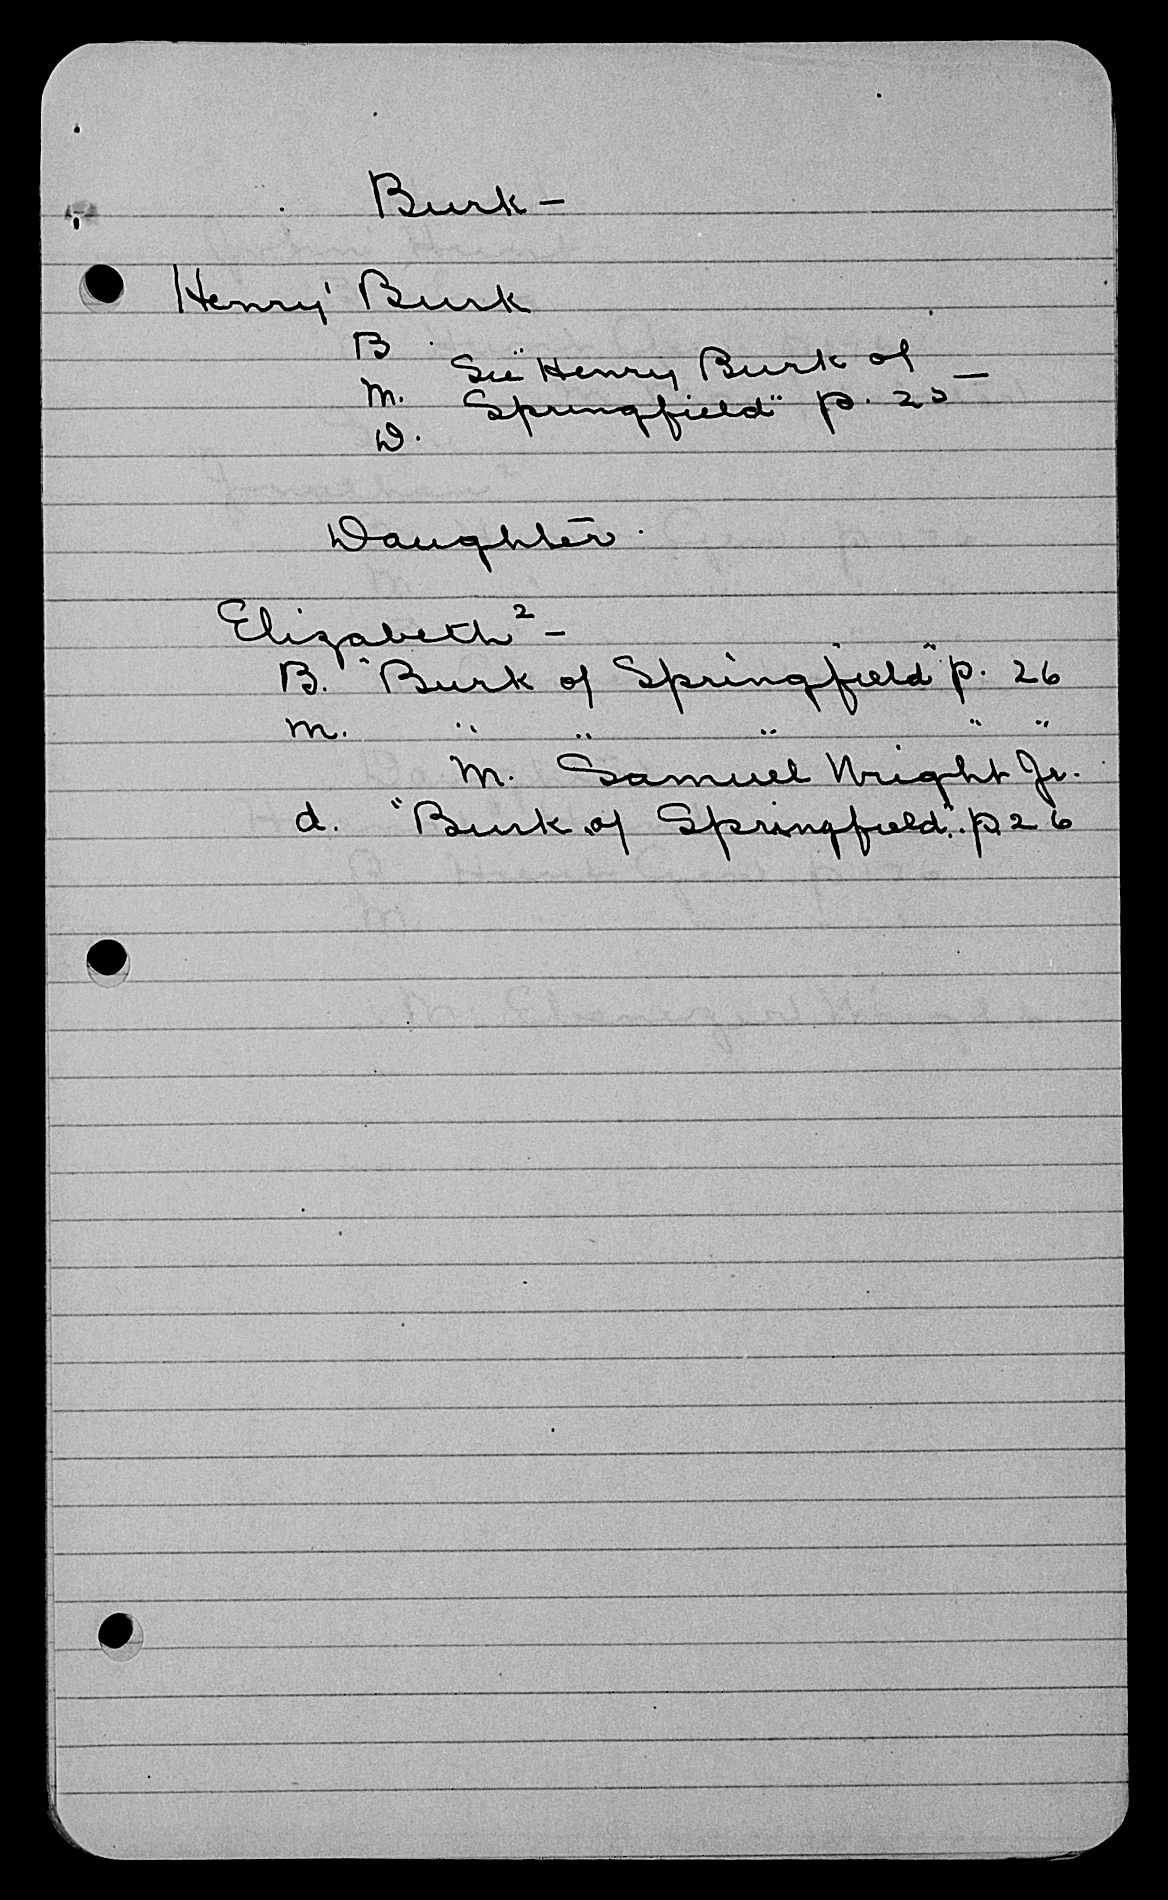 Burk -
Henry¹ Burk
B
See "Henry Burk of
M. Springfield" p. 25 -
D.
Daughter.
Elizabeth² -
B. "Burk of Springfield" p. 26
m. " " " " "
M. Samuel Wright Jr.
d. "Burk of Springfield". p. 26